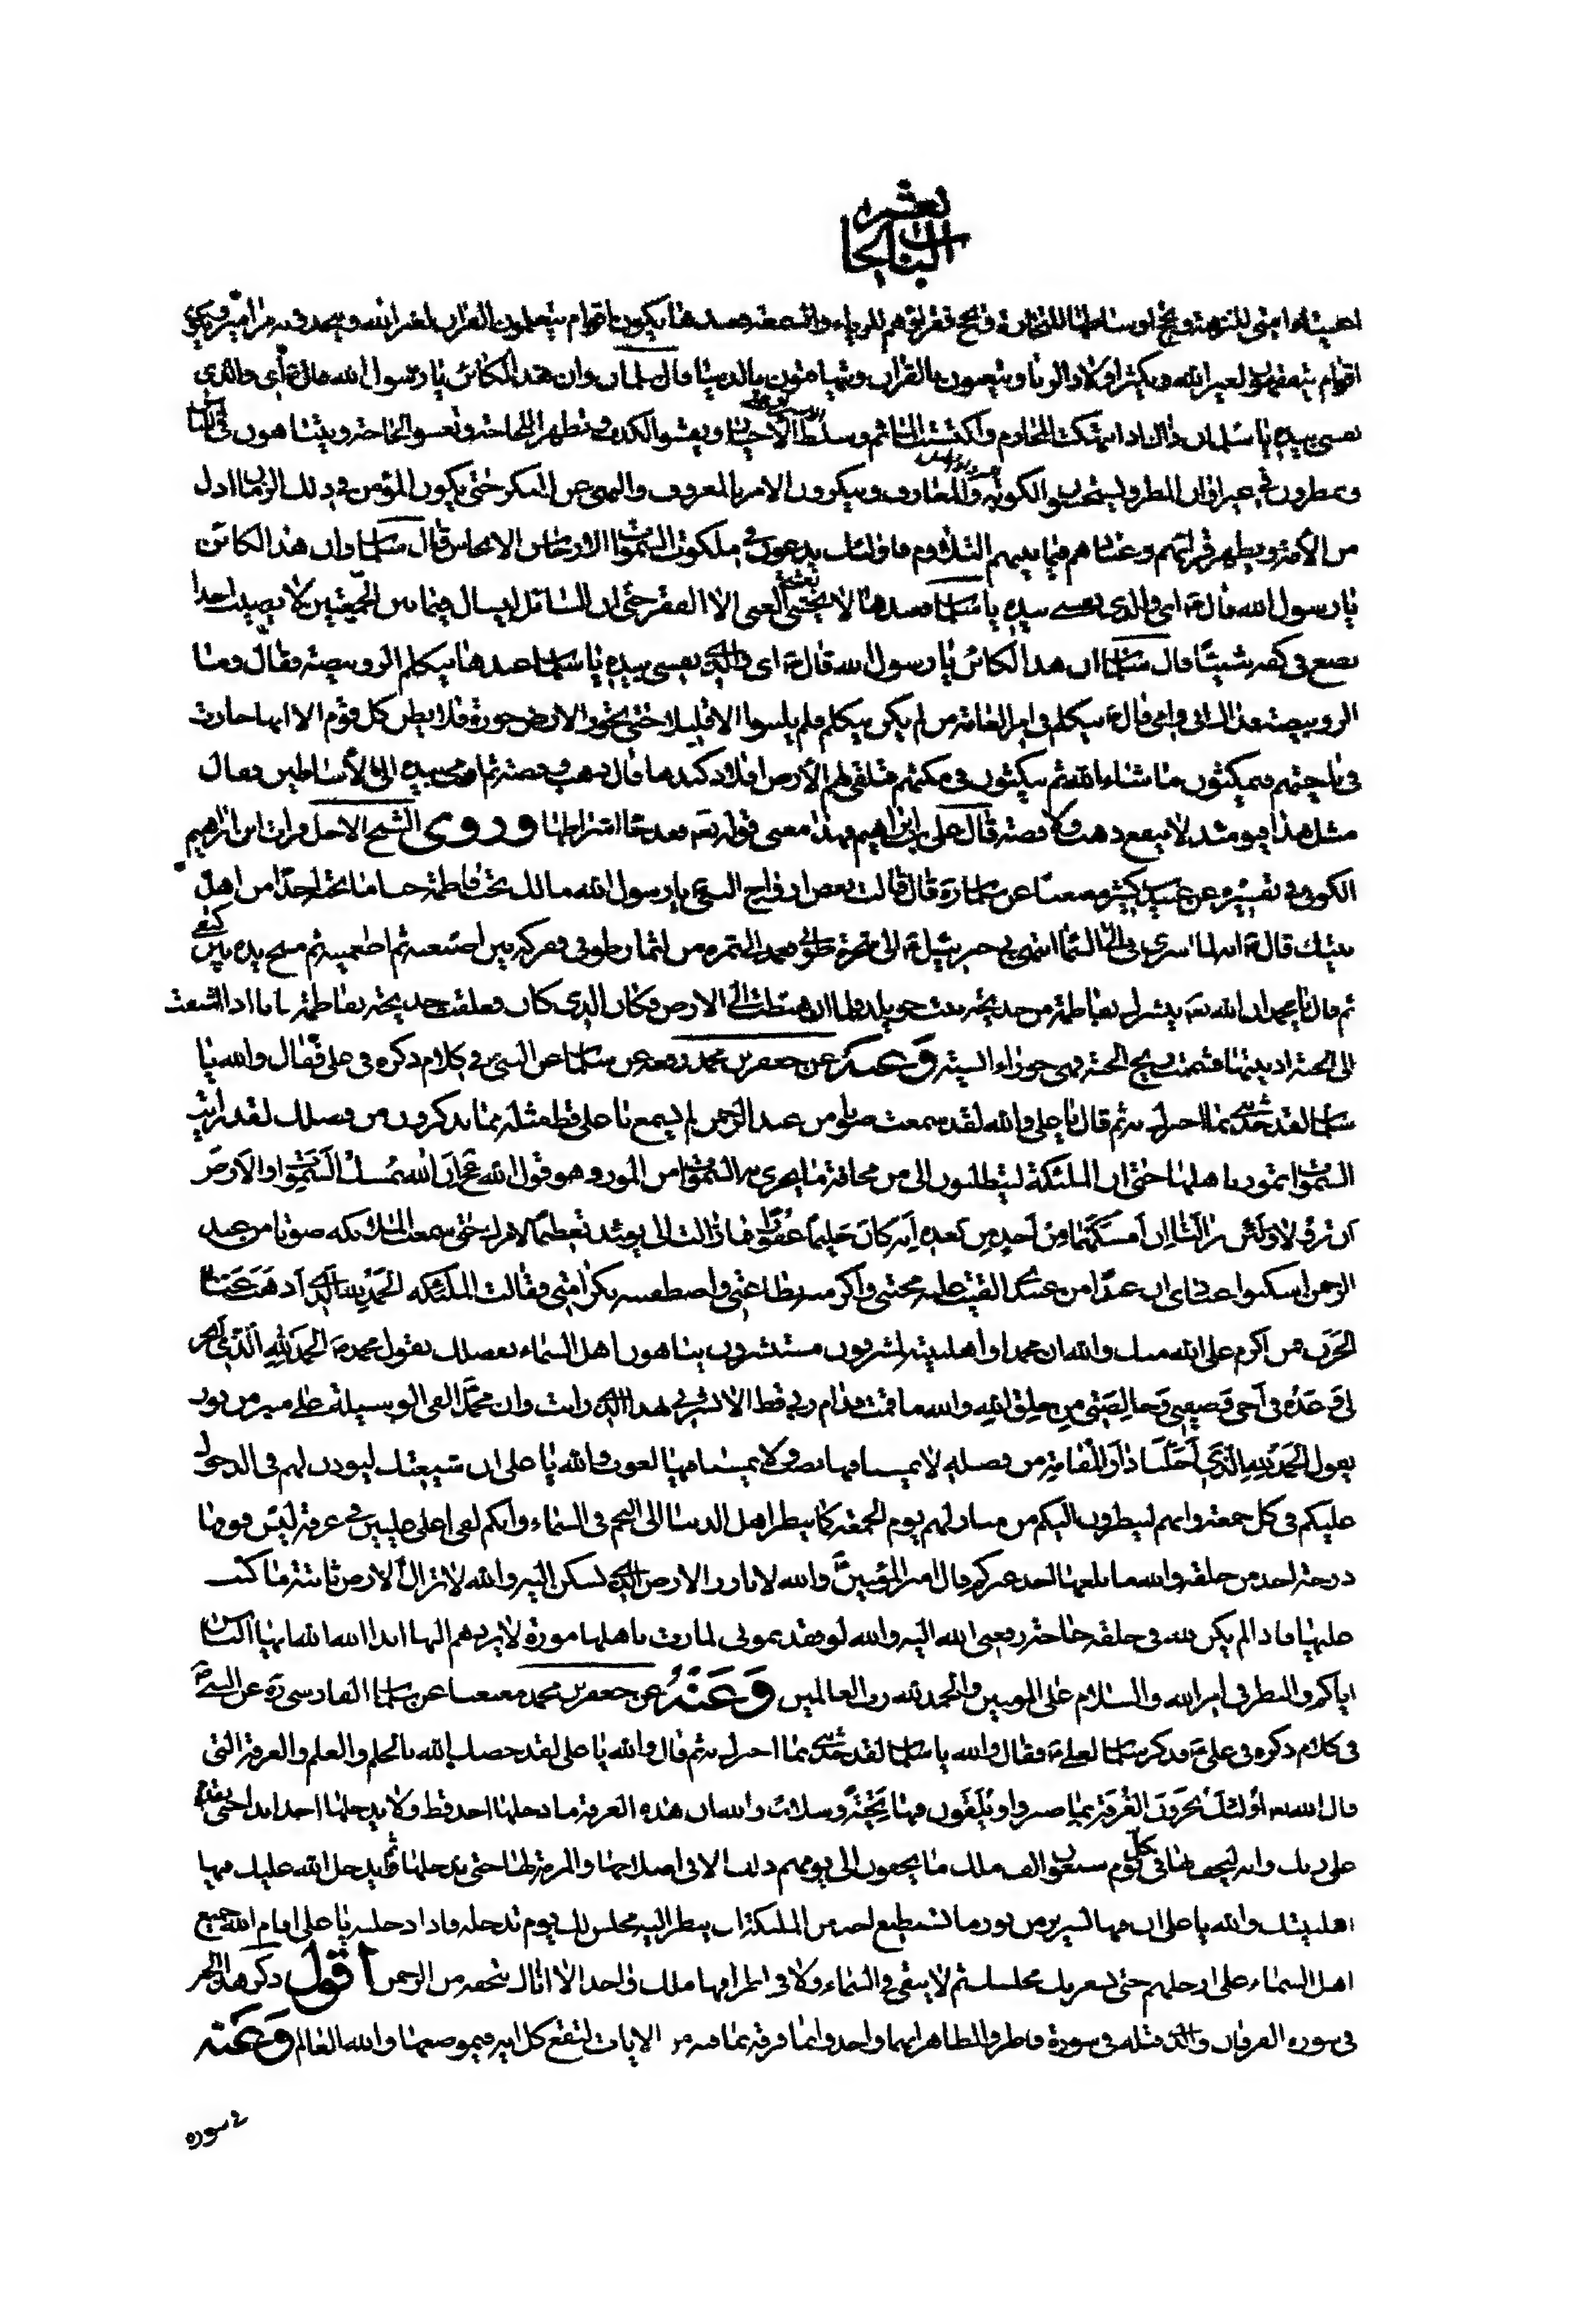 الباب الحادي عشر
اغنياء امتي للنزهة ويحج اوساطها للتجارة ويحج فقراؤهم للرياء والسمعة فعندها يكون اقوام يتعلمون القران لغير الله ويتخذونه مزامير ويكون
اقوام يتفقهون لغير الله ويكثر اولاد الزنا ويتغنون بالقران ويتهافتون بالدنيا قال سلمان وان هذا لكائن يا رسول الله قال ص اي والذي
نفسي بيده يا سلمان ذاك اذا انتهكت المحارم واكتسبت المآثم وسلط الاشرار على الاخيار ويفشو الكذب وتظهر اللجاجة وتفشو الحاجة ويتباهون في اللباس
ويمطرون في غير اوان المطر ويستحسنون الكوبة والمعازف وينكرون الامر بالمعروف والنهي عن المنكر حتى يكون المؤمن في ذلك الزمان اذل
من الامة ويظهر قراؤهم وعبادهم فيما بينهم التلاوم فاولئك يدعون في ملكوت السموات الارجاس الانجاس قال سلمان وان هذا لكائن
يا رسول الله قال ص اي والذي نفسي بيده يا سلمان فعندها لا يخشى الغني الا الفقر حتى ان السائل ليسال فيما بين الجمعتين لا يصيب احدا
يضع في كفه شيئا قال سلمان ان هذا لكائن يا رسول الله قال ص اي والذي نفسي بيده يا سلمان عندها يتكلم الرويبضة فقال وما
الرويبضة فداك ابي وامي قال ص يتكلم في امر العامة من لم يكن يتكلم فلم يلبثوا الا قليلا حتى تخور الارض خورة فلا يظن كل قوم الا انها خارت
في ناحيتهم فيمكثون ما شاء الله ثم ينكتون في مكثهم فتلقي لهم الارض افلاذ كبدها قال ذهب وفضة ثم اومى بيده الى الاساطين فقال
مثل هذا فيومئذ لا ينفع ذهب ولا فضة قال علي بن ابراهيم فهذا معنى قوله تعه فقد جاء اشراطها وروى الشيخ الاجل فرات ابن ابراهيم
الكوفي في تفسيره عن عبيد كثير معنعنا عن سلمان ره قال قالت بعض ازواج النبي يا رسول الله مالك تحب فاطمة حبا ما تحب احدا من اهل
بيتك قال ص انه لما اسري بي الى السماء انتهى بي جبرئيل ع الى شجرة طوبى فعمد الى ثمرة من اثمار طوبى ففركه بين اصبعيه ثم اطعمنيه ثم مسح يده بين كتفي
ثم قال يا محمد ان الله تعه يبشرك بفاطمة من خديجة بنت خويلد فلما ان هبطت الى الارض فكان الذي كان فعلقت خديجة بفاطمة فانا اذا اشتقت
الى الجنة ادنيتها فشممت ريح الجنة فهي حوراء انسية وعنه عن جعفر بن محمد رفعه عن سلمان عن النبي ص في كلام ذكره في علي فقال والله يا
سلمان لقد حدثني بما اخبرك به ثم قال يا علي والله لقد سمعت صوتا من عبد الرحمن لم يسمع يا علي قط مثله بما يذكرون من فضلك لقد رايت
السموات تمور باهلها حتى ان الملئكة ليتطلعون الي من مخافة ما يجري به السموات من المور وهو قول الله عج ان الله يمسك السموات والارض
ان تزولا ولئن زالتا ان امسكهما من احد من بعده انه كان حليما غفورا فما زالت الى يومئذ تعظيما لامرك حتى سمعت الملائكه صوتا من عند
الرحمن اسكنوا عبادي ان عبدا من عبيدي القيت عليه محبتي واكرمته بطاعتي واصطفيته بكرامتي وقالت الملئكه الحمد لله الذي اذهب عنا
الحزن فمن اكرم على الله منك والله ان محمدا واهل بيته لمشرفون مستبشرون يتباهون اهل السماء بفضلك يقول محمد ص الحمد لله الذي انجز
لي وعده في اخي وصفيي وخالصتي من خلق الله والله ما قمت قدام ربي قط الا بشرني بهذا الذي رايت وان محمدا لفي الوسيلة على منبر من نور
يقول الحمد لله الذي احلنا دار المقامة من فضله لا يمسنا فيها نصب ولا يمسنا فيها لغوب والله يا علي ان شيعتك ليؤذن لهم في الدخول
عليكم في كل جمعة وانهم لينظرون اليكم من منازلهم يوم الجمعة كما ينظر اهل الدنيا الى النجم في السماء وانكم لفي اعلى عليين في غرفة ليس فوقها
درجة احد من خلقه والله ما بلغها احد غيركم قال امير المؤمنين والله لانا ورا الارض الذي تسكن اليه والله لا تزال الارض ثابتة ما كنت
عليها فاذا لم يكن لله في خلقه حاجة رفعني الله اليه والله لو فقدتموني لمارت باهلها مورة لا يردهم اليها ابدا الله الله ايها الناس
اياكم والنظر في امر الله والسلام على المؤمنين والحمد لله رب العالمين وعنه عن جعفر بن محمد معنعنا عن سلمان الفارسي ره عن النبي ص
في كلام ذكره في علي ع فذكر سلمان لعلي ع فقال والله يا سلمان لقد حدثني بما اخبرك به ثم قال والله يا علي لقد خصك الله بالحلم والعلم والغرفة التي
قال الله اولئك يجزون الغرفة بما صبروا ويلقون فيها تحية وسلاما والله ان هذه الغرفة ما دخلها احد قط ولا يدخلها احد ابدا حتى تقوم
على ربك وانه ليحف بها في كل يوم سبعون الف ملك ما يحفون الى يومهم ذلك الا في اصلاحها والمرمة لها حتى تدخلها ثم يدخل الله عليك فيها
اهل بيتك والله يا علي ان فيها لسرير من نور ما تستطيع احد من الملئكة ان ينظر اليه مجلس لك يوم تدخله فاذا دخلته يا علي اقام الله جميع
اهل السماء على ارجلهم حتى يستقر بك مجلسك ثم لا يبقى في السماء ولا في اطرافها ملك واحد الا اتاك بتحفة من الرحمن اقول ذكر هذا الخبر
في سوره الفرقان والذي قبله في سورة فاطر والظاهر انهما واحد وانما فرقه بما فيه من الايات لتقع كل اية في موضعها والله العالم وعنه
في سوره